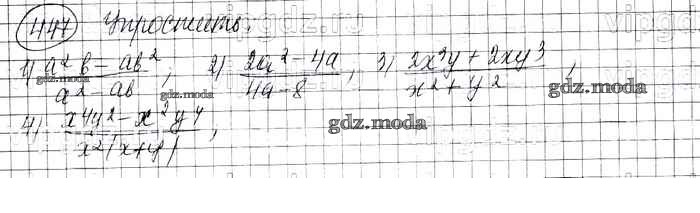 447 Упростить:
1) (a² b - ab²)/(a² - ab), 2) (2a² - 4a)/(4a - 8), 3) (2x³y + 2xy³)/(x² + y²),
4) (x⁴y² - x² y⁴)/(x²(x+y)),
vipgdz.ru
vipgdz
gdz.moda
gdz.moda
gdz.moda
gdz.moda